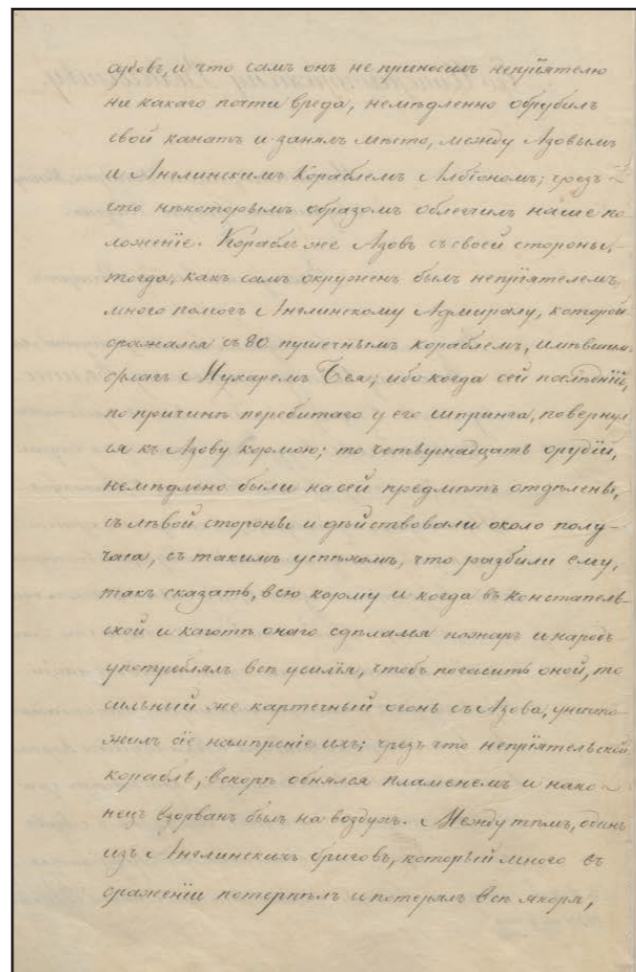 аубовъ, и что самъ онъ не приносилъ непріятелю
ни какаго почти вреда, немѣдленно обрубилъ
свой канатъ и занялъ мѣсто, между Азовымъ
и Англинскимъ Кораблемъ Албіономъ; чрезъ
что нѣкоторымъ образомъ облегчилъ наше по
ложеніе. Корабль же Азовъ съ своей стороны,
тогда, какъ самъ окруженъ былъ непріятелемъ,
много помогъ Англинскому Адмиралу, которой
сражался съ 80 пушечнымъ кораблемъ, имѣвшимъ
флагъ Мухаремъ Бея; ибо когда сей послѣдній,
по причинѣ перебитаго у его шпринга, повернул
ся къ Азову кормою; то четвурнадцать орудій,
немѣдлено были на сей предмѣтъ отдѣлены,
съ лѣвой стороны и дѣйствовали около полу-
часа, съ такимъ успѣхомъ, что разбили ему,
такъ сказать, всю корму и когда въ констапель-
ской и каютѣ онаго сдѣлался пожаръ и народъ
употреблялъ всѣ усилія, чтобъ погасить оной, то
сильный же картечный огонь съ Азова, уничто
жилъ сіе намѣреніе ихъ; чрезъ что непріятельской
корабль, вскорѣ обнялся пламенемъ и нако
нецъ взорванъ былъ на воздухъ. Между тѣмъ, одинъ
изъ Англинскихъ бриговъ, который много въ
сраженіи потерпѣлъ и потерялъ всѣ якоря,